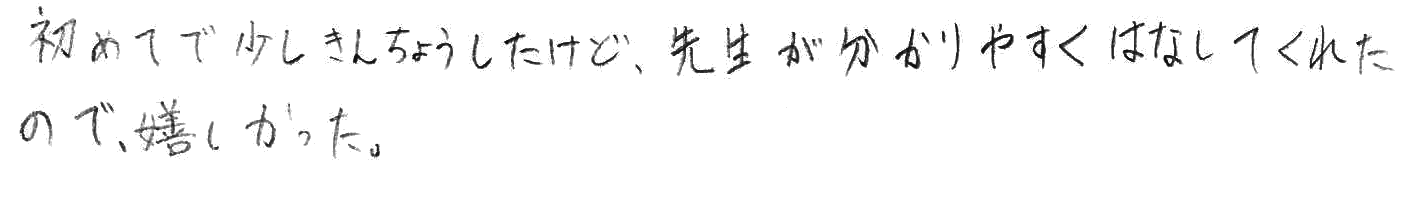 初めてで少しきんちょうしたけど、先生が分かりやすくはなしてくれた
ので、嬉しかった。